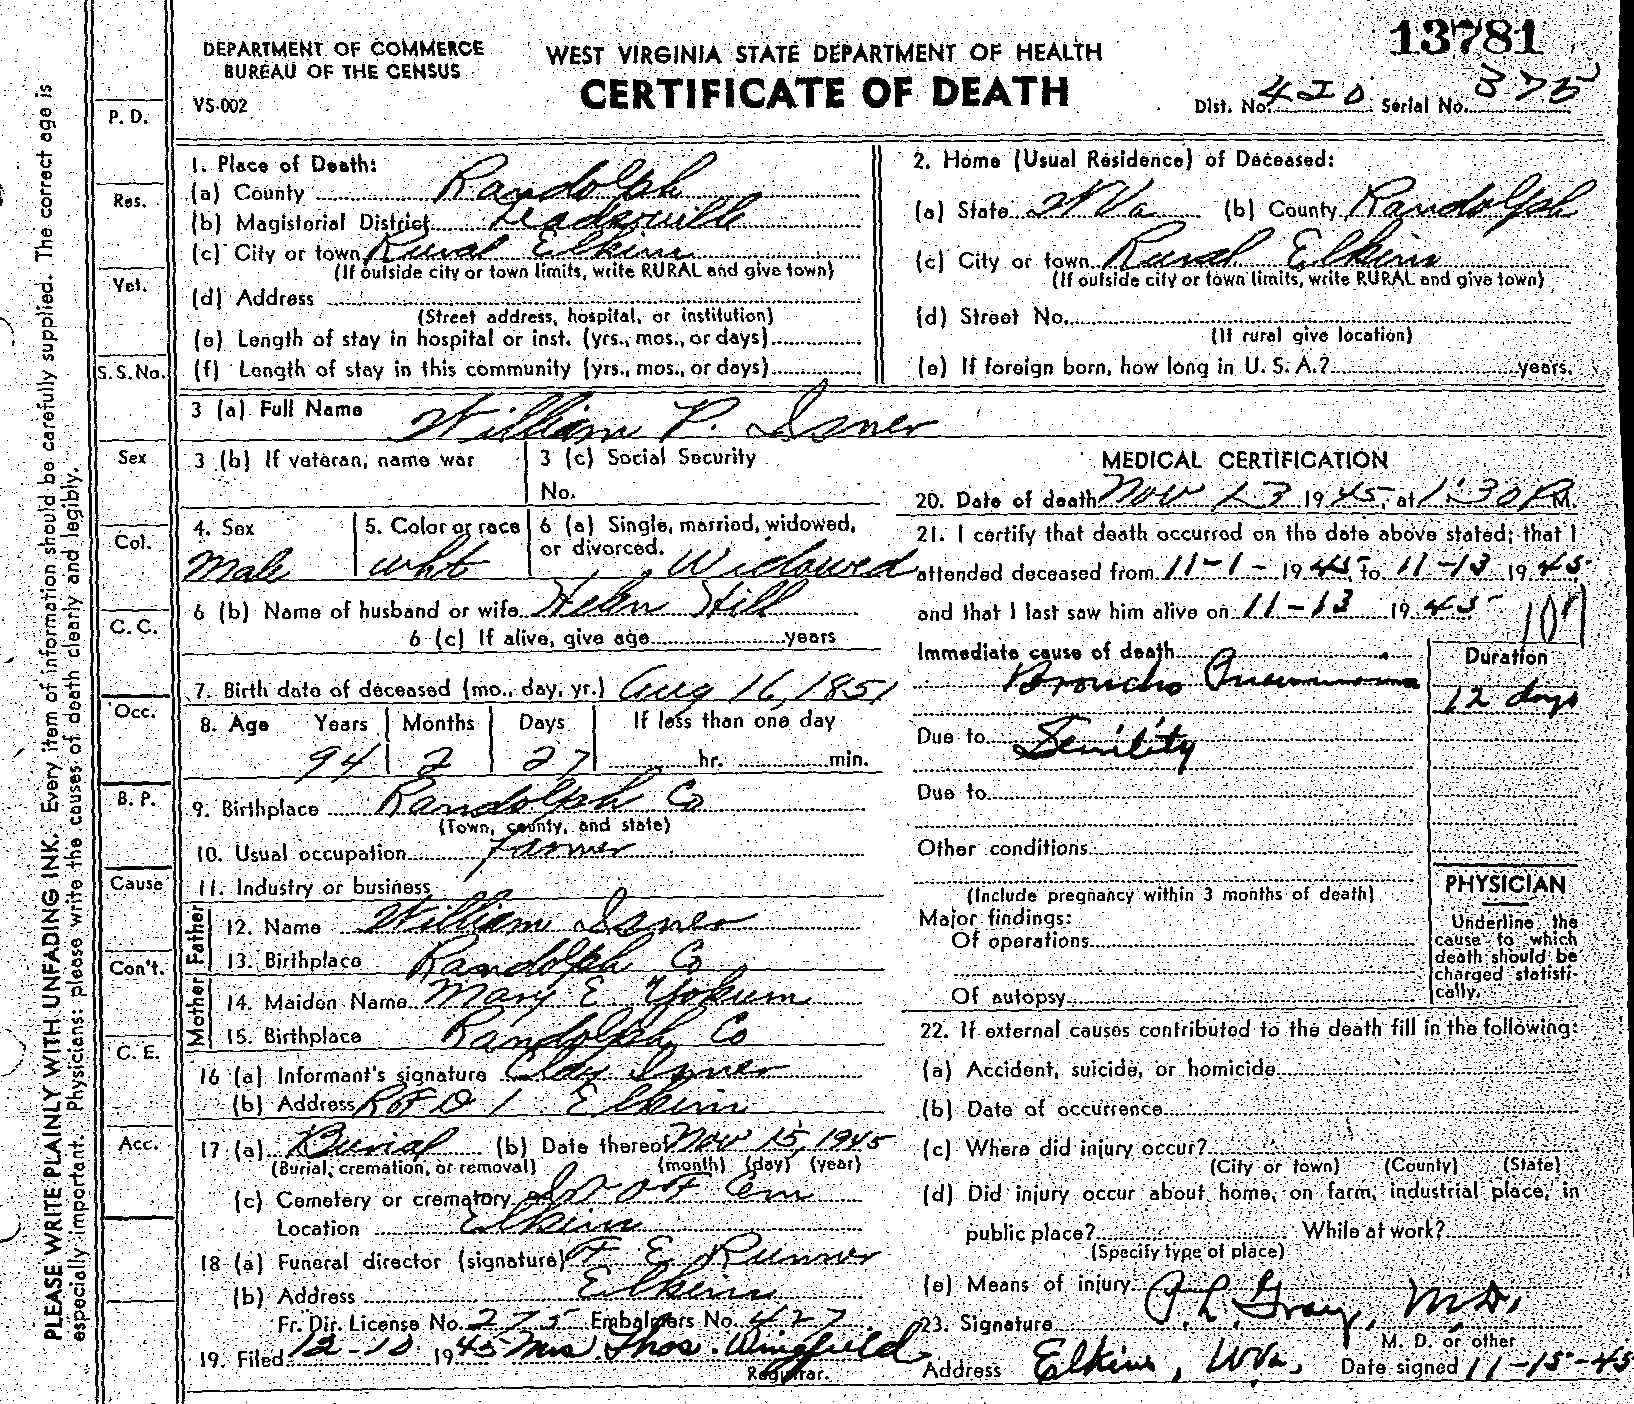 13781
DEPARTMENT OF COMMERCE
BUREAU OF THE CENSUS
VS-002
WEST VIRGINIA STATE DEPARTMENT OF HEALTH
CERTIFICATE OF DEATH
Dist. No. 420 Serial No. 375
PLEASE WRITE PLAINLY WITH UNFADING INK. Every item of information should be carefully supplied. The correct age is
especially important. Physicians: please write the causes of death clearly and legibly.
P. D.
Res.
Vet.
S. S. No.
Sex
Col.
C. C.
Occ.
B. P.
Cause
Con't.
C. E.
Acc.
1. Place of Death:
(a) County Randolph
(b) Magisterial District Leadsville
(c) City or town Rural Elkins
(If outside city or town limits, write RURAL and give town)
(d) Address
(Street address, hospital, or institution)
(e) Length of stay in hospital or inst. (yrs., mos., or days)
(f) Length of stay in this community (yrs., mos., or days)
2. Home (Usual Residence) of Deceased:
(a) State W Va (b) County Randolph
(c) City or town Rural Elkins
(If outside city or town limits, write RURAL and give town)
(d) Street No.
(If rural give location)
(e) If foreign born, how long in U. S. A.? years.
3 (a) Full Name William P. Isner
3 (b) If veteran, name war
3 (c) Social Security
No.
4. Sex
Male
5. Color or race
Wht
6 (a) Single, married, widowed,
or divorced. Widowed
6 (b) Name of husband or wife Helen Hill
6 (c) If alive, give age years
7. Birth date of deceased (mo., day, yr.) Aug 16, 1851
8. Age Years Months Days If less than one day
94 2 27 hr. min.
9. Birthplace Randolph Co
(Town, county, and state)
10. Usual occupation Farmer
11. Industry or business
Father
12. Name William Isner
13. Birthplace Randolph Co
Mother
14. Maiden Name Mary E Yokum
15. Birthplace Randolph Co
16 (a) Informant's signature Clay Isner
(b) Address R F D 1 Elkins
17 (a) Burial (b) Date thereof Nov 15, 1945
(Burial, cremation, or removal) (month) (day) (year)
(c) Cemetery or crematory I O O F Cem
Location Elkins
18 (a) Funeral director (signature) F E Runner
(b) Address Elkins
Fr. Dir. License No. 275 Embalmers No. 427
19. Filed 12-10 1945 Mrs. Thos. Wingfield
Registrar.
MEDICAL CERTIFICATION
20. Date of death Nov 13 1945, at 1:30 P.M.
21. I certify that death occurred on the date above stated; that I
attended deceased from 11-1- 1945, to 11-13 1945
and that I last saw him alive on 11-13 1945
107
Immediate cause of death
Broncho Pneumonia
Duration
12 days
Due to Senility
Due to
Other conditions
(Include pregnancy within 3 months of death)
Major findings:
Of operations
Of autopsy
PHYSICIAN
Underline the
cause to which
death should be
charged statisti-
cally.
22. If external causes contributed to the death fill in the following:
(a) Accident, suicide, or homicide
(b) Date of occurrence
(c) Where did injury occur?
(City or town) (County) (State)
(d) Did injury occur about home, on farm, industrial place, in
public place? While at work?
(Specify type of place)
(e) Means of injury
23. Signature P. L. Gray, M.D.
M. D. or other
Address Elkins, W Va. Date signed 11-15-45